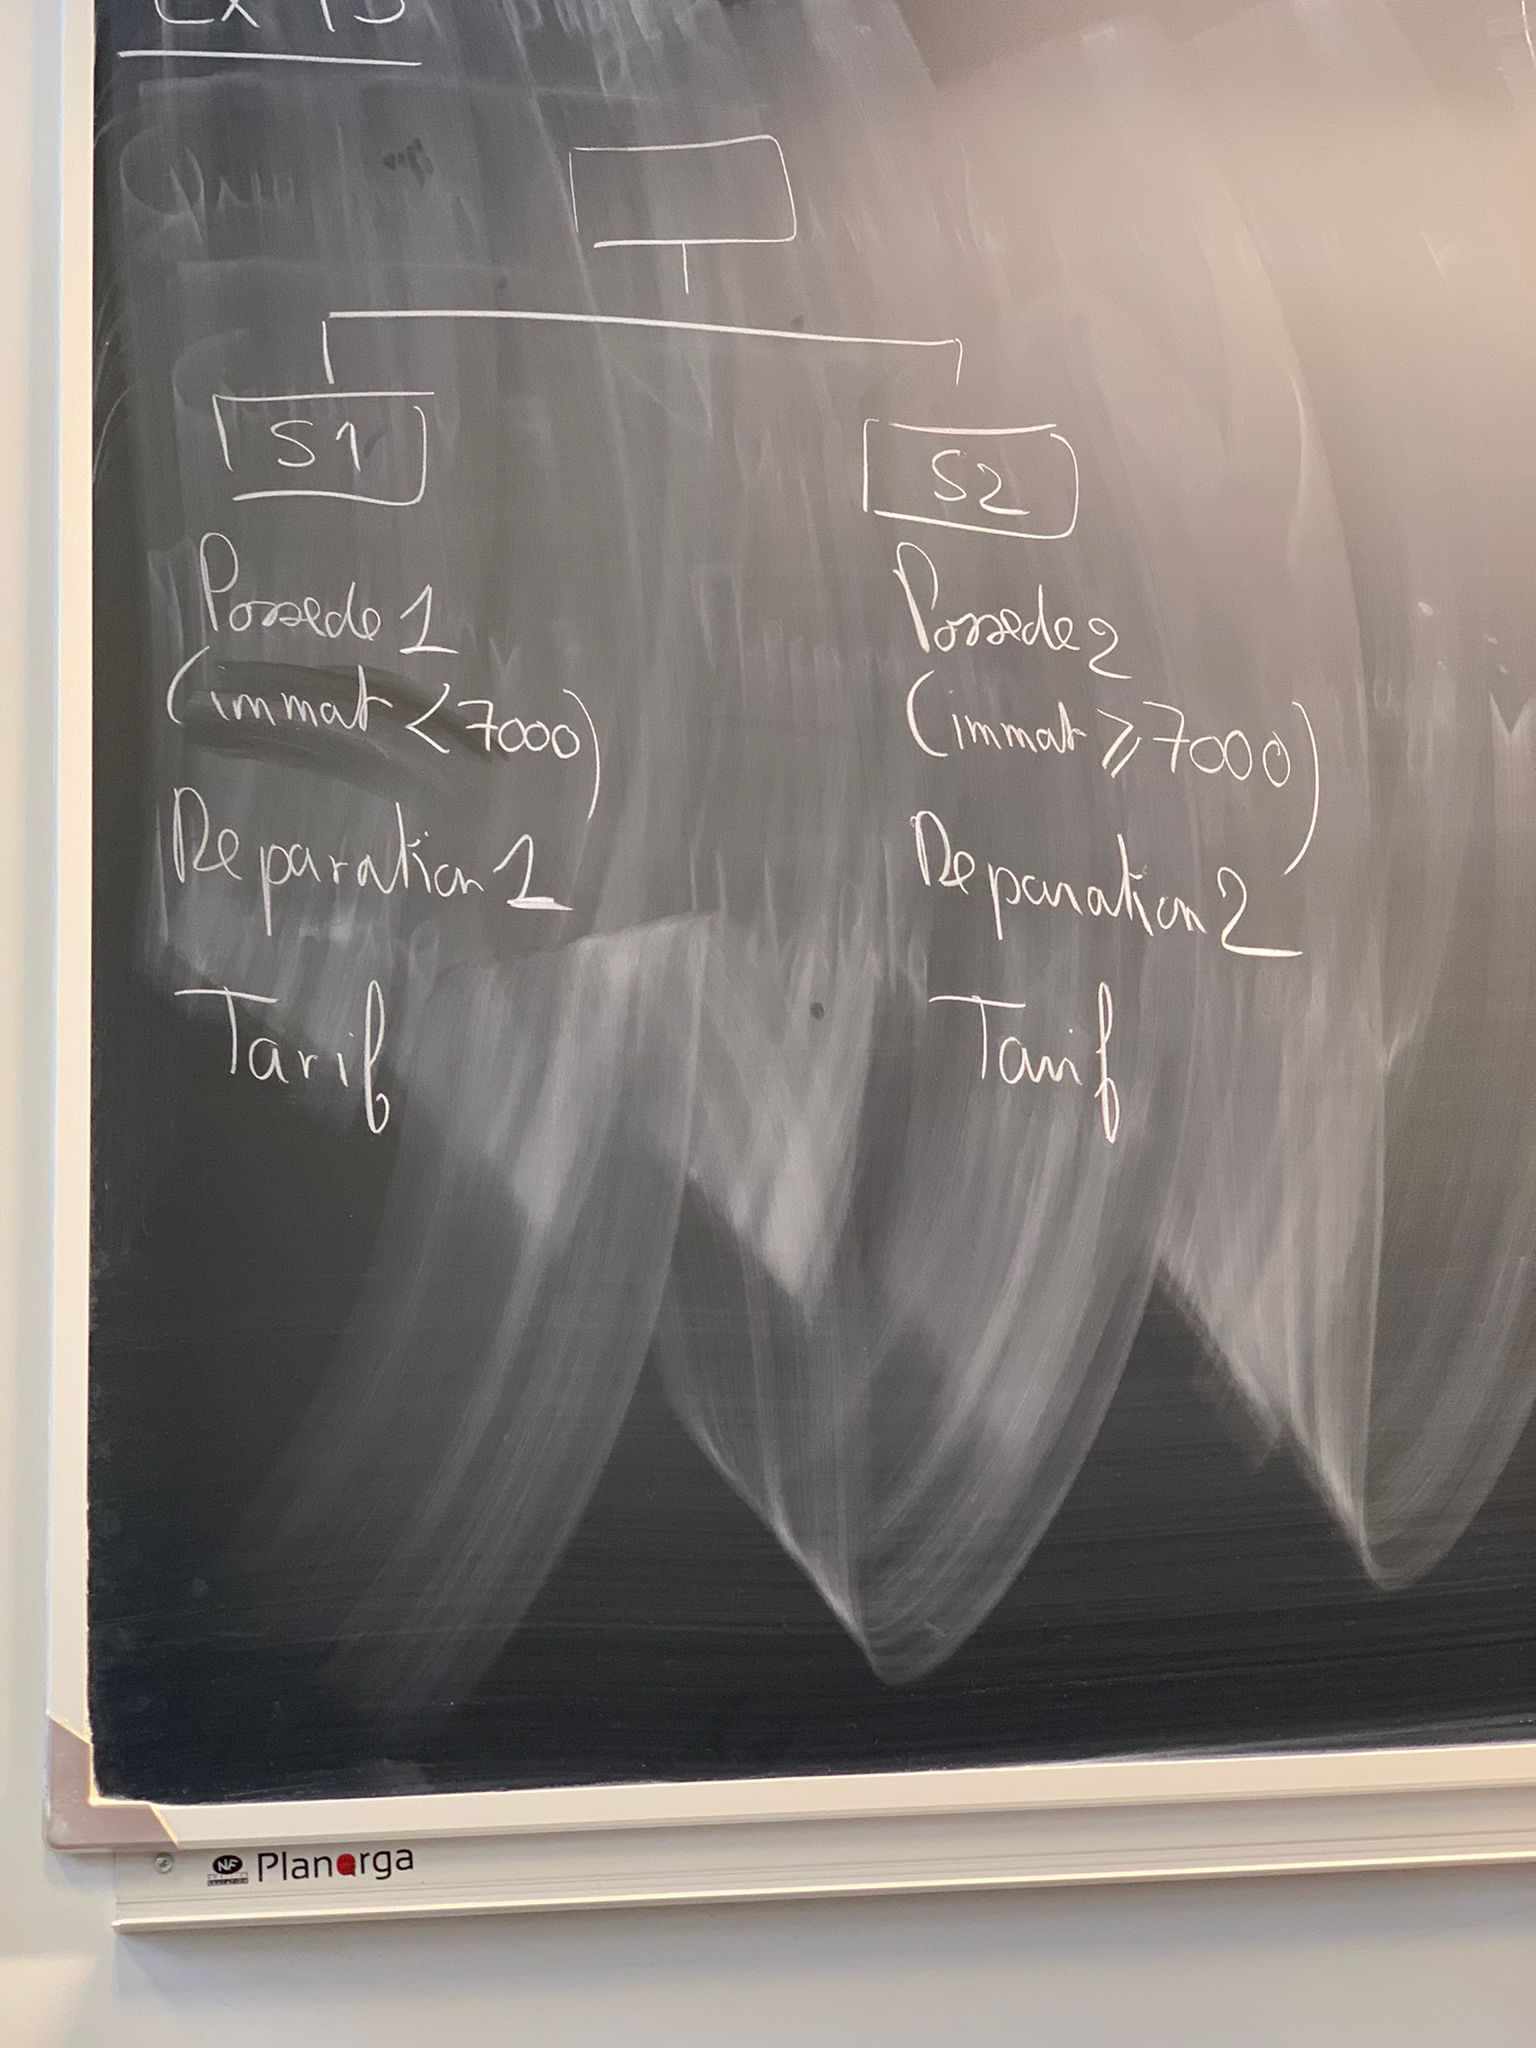 Ex 13
S1
S2
Possede 1
(immat < 7000)
Reparation 1
Tarif
Possede 2
(immat ⩾ 7000)
Reparation 2
Tarif
NF
Planorga